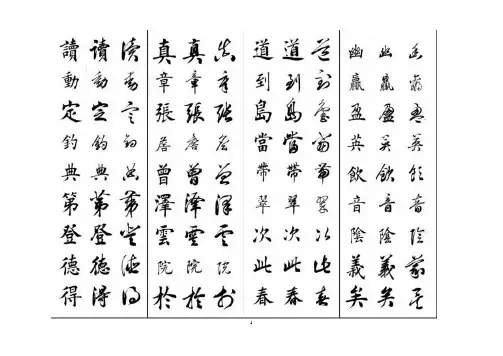 讀 讀 讀 真 真 真 道 道 道 幽 幽 幽
動 動 動 章 章 章 到 到 到 贏 贏 贏
定 定 定 張 張 張 島 島 島 盈 盈 盈
釣 釣 釣 詹 詹 詹 當 當 當 英 英 英
典 典 典 曾 曾 曾 帶 帶 帶 飲 飲 飲
第 第 第 澤 澤 澤 翠 翠 翠 音 音 音
登 登 登 雲 雲 雲 次 次 次 陰 陰 陰
德 德 德 院 院 院 此 此 此 義 義 義
得 得 得 於 於 於 春 春 春 矣 矣 矣